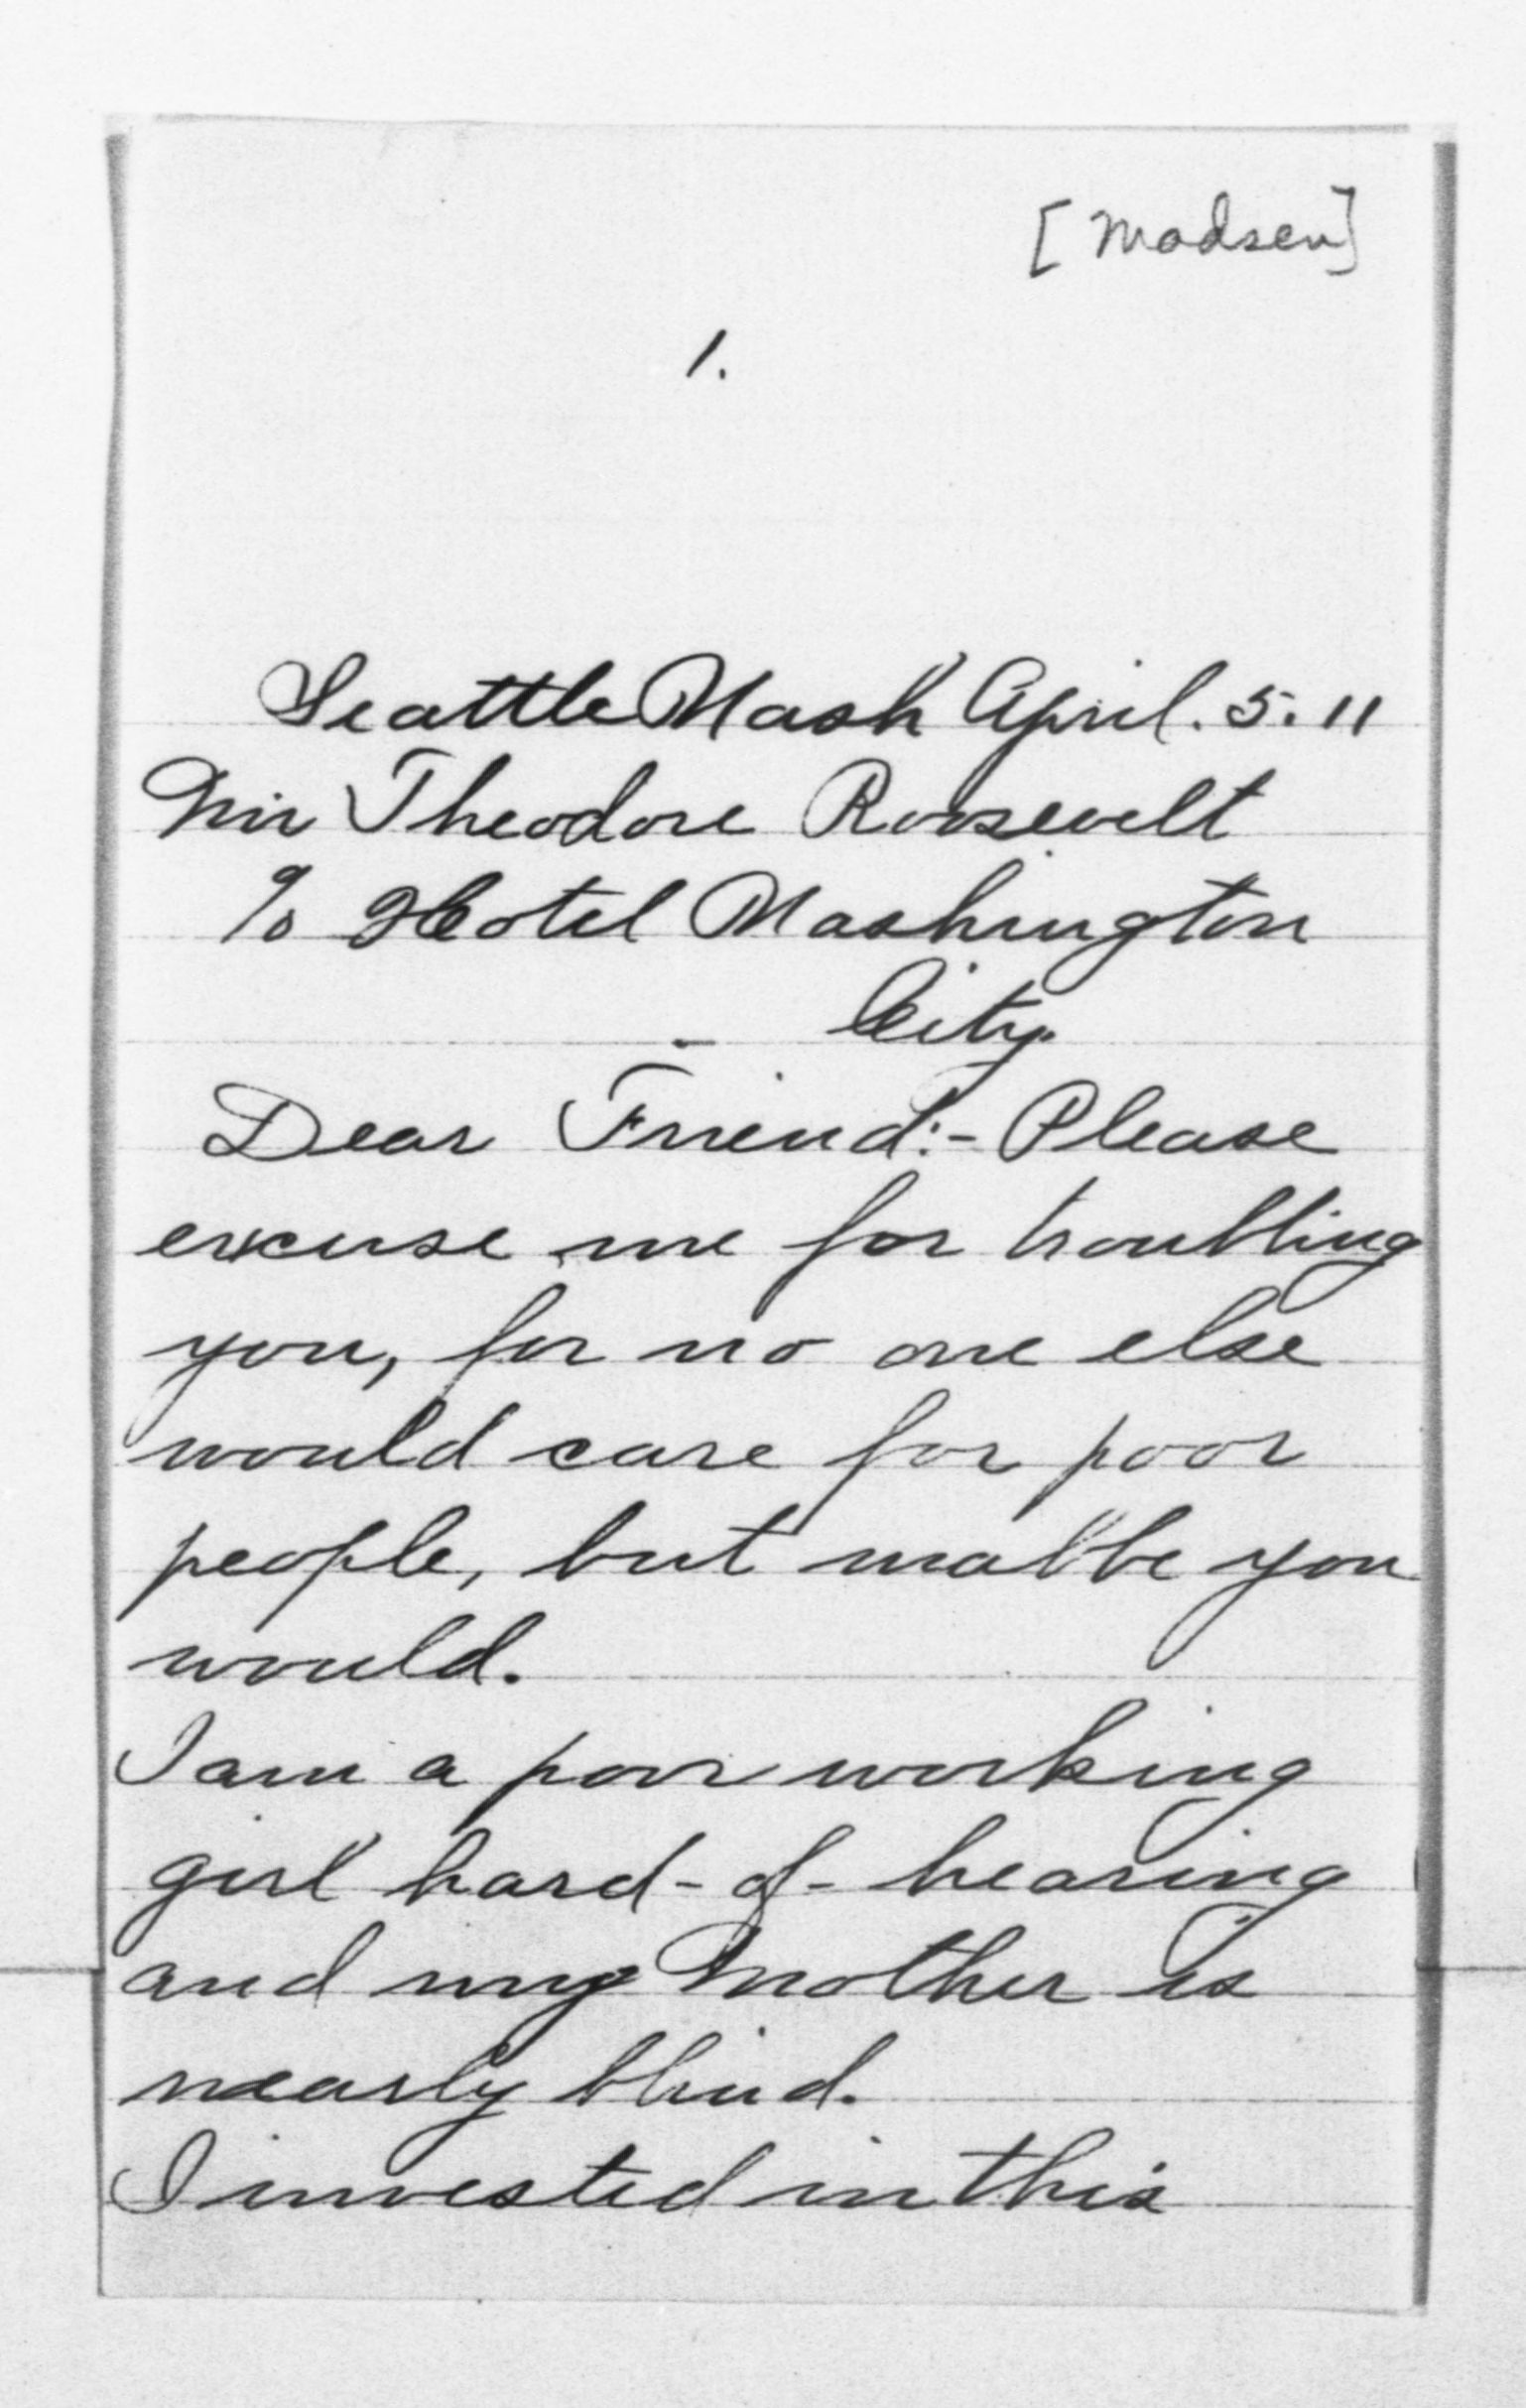 [Madsen]
1.
Seattle Wash April. 5. 11
Mr Theodore Roosevelt
c/o Hotel Washington
City.
Dear Friend:- Please
excuse me for troubling
you, for no one else
would care for poor
people, but mabbe you
would.
I am a poor working
girl hard-of-hearing
and my Mother is
nearly blind.
I invested in this